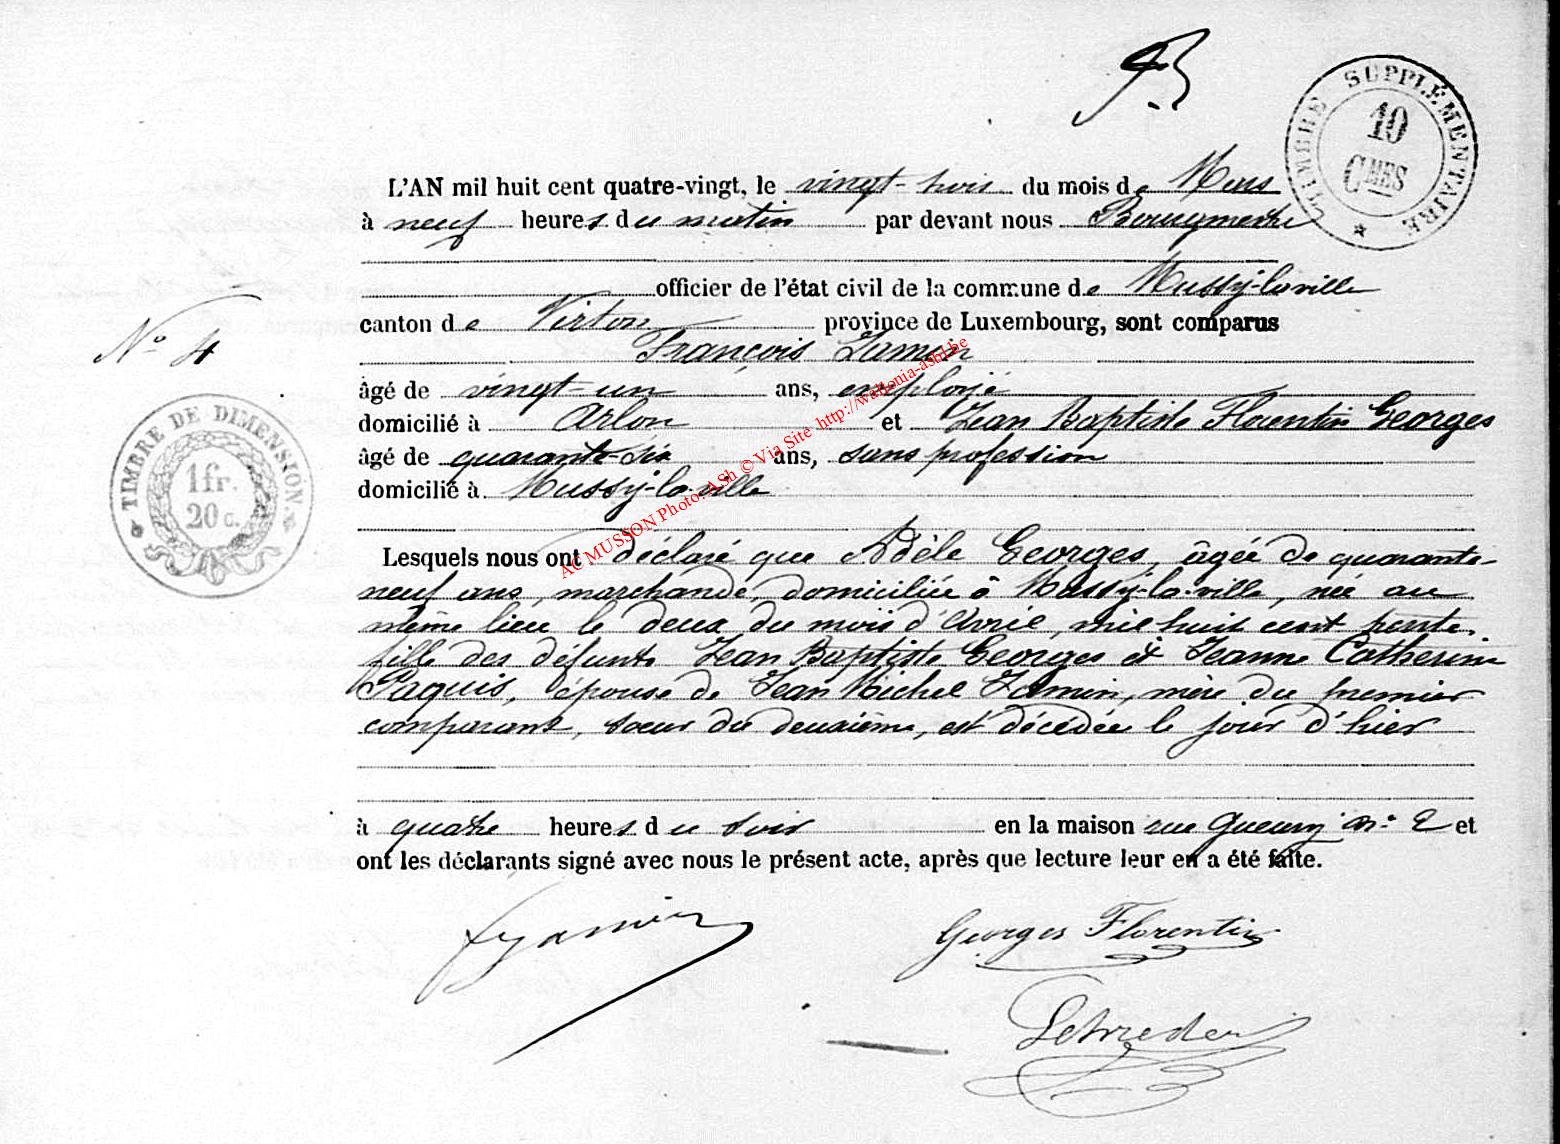 TIMBRE SUPPLÉMENTAIRE
10
CMES
L'AN mil huit cent quatre-vingt, le vingt-trois du mois de Mars
à neuf heures du matin par devant nous Bourgmestre
officier de l'état civil de la commune de Mussy-la-ville
canton de Virton province de Luxembourg, sont comparus
N° 4
François Jamin
âgé de vingt-un ans, employé
domicilié à Arlon et Jean Baptiste Florentin Georges
âgé de quarante-six ans, sans profession
domicilié à Mussy-la-ville
TIMBRE DE DIMENSION
1fr.
20 c.
AC MUSSON Photo: ASh © Via Site http://wallonia-asbl.be
Lesquels nous ont déclaré que Adèle Georges, âgée de quarante-
neuf ans, marchande, domiciliée à Mussy-la-ville, née au
même lieu le deux du mois d'Avril, mil huit cent trente,
fille des défunts Jean Baptiste Georges et Jeanne Catherine
Paquis, épouse de Jean Michel Jamin, mère du premier
comparant, soeur du deuxième, est décédée le jour d'hier
à quatre heures du soir en la maison rue n° 2 et
ont les déclarants signé avec nous le présent acte, après que lecture leur en a été faite.
fjamin
Georges Florentin